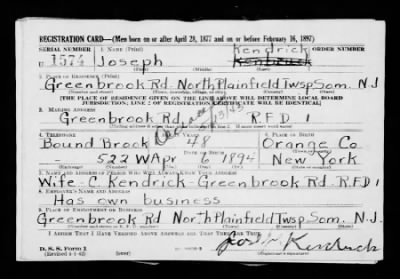 REGISTRATION CARD—(Men born on or after April 28, 1877 and on or before February 16, 1897)
SERIAL NUMBER 1. NAME (Print) ORDER NUMBER
Kendrick
U 1574 Joseph
2. PLACE OF RESIDENCE (Print)
Greenbrook Rd. North Plainfield Twsp Som. N J
[THE PLACE OF RESIDENCE GIVEN ON THE LINE ABOVE WILL DETERMINE LOCAL BOARD
JURISDICTION; LINE 2 OF REGISTRATION CERTIFICATE WILL BE IDENTICAL]
3. MAILING ADDRESS
Greenbrook Rd. R.F.D 1
4. TELEPHONE PLACE OF BIRTH
Bound Brook 48 Orange Co.
DATE OF BIRTH
522 W Apr 6 1894 New York
7. NAME AND ADDRESS OF PERSON WHO WILL ALWAYS KNOW YOUR ADDRESS
Wife C. Kendrick - Greenbrook Rd. R.F.D 1
8. EMPLOYER'S NAME AND ADDRESS
Has own business
9. PLACE OF EMPLOYMENT OR BUSINESS
Greenbrook Rd North Plainfield Twsp Som. N.J.
I AFFIRM THAT I HAVE VERIFIED ABOVE ANSWERS AND THAT THEY ARE TRUE.
D. S. S. Form 1
Joseph Kendrick